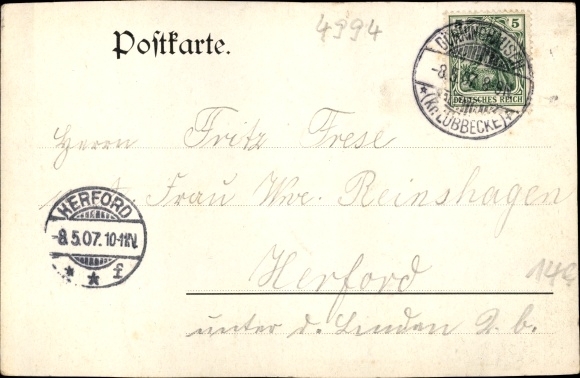 4394
Postkarte.
5
DEUTSCHES REICH
-8.5.07.
*(Kr. LÜBBECKE)*
Herrn Fritz Frese
Frau Wwe. Reinshagen
HERFORD
-8.5.07.10-11N.
* * f
Herford
unter d. Linden 2. b.